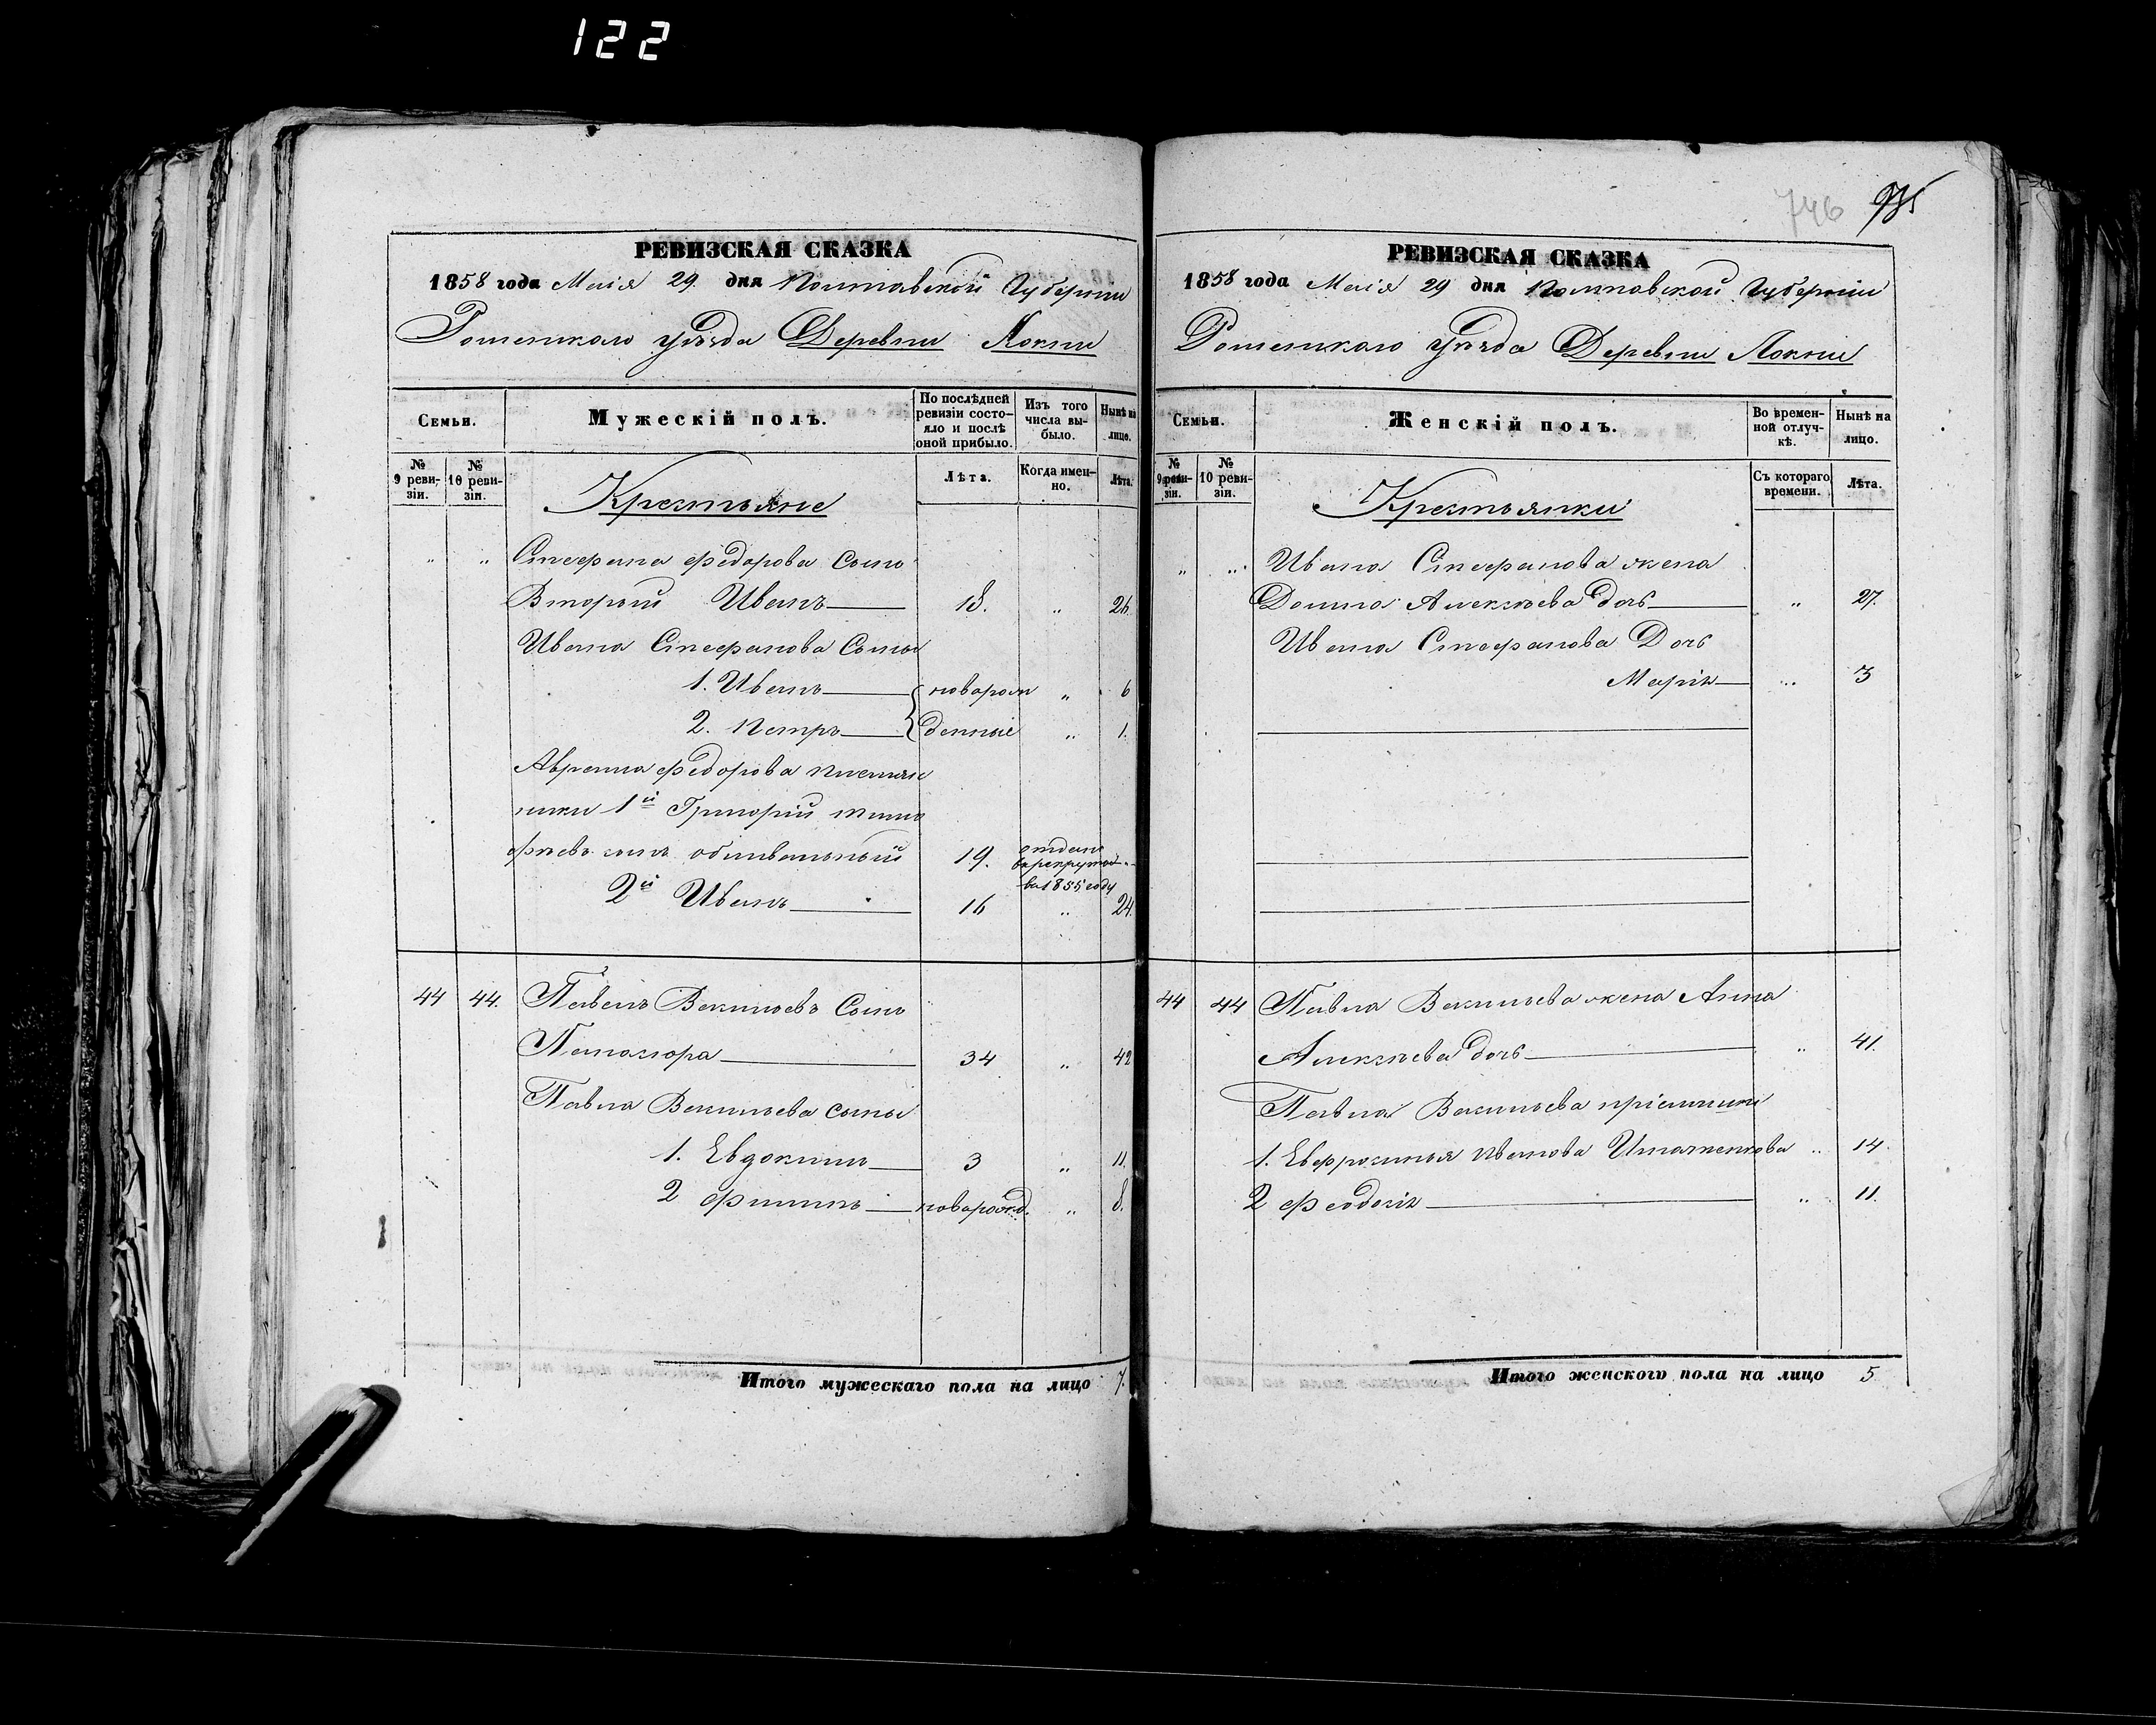 122
746
РЕВИЗСКАЯ СКАЗКА
1858 года Маія 29. дня Полтавской Губерніи
Роменскаго уѣзда Деревни Локни
Семьи.
Мужескій полъ.
По послѣдней ревизіи состояло и послѣ оной прибыло.
Изъ того числа выбыло.
Нынѣ на лицо.
№ 9 ревизіи.
№ 10 ревизіи.
Крестьяне
Лѣта.
Когда именно.
Лѣта.
„ „ Стефана Федорова Сынъ
Второй Иванъ 18. „ 26.
Ивана Стефанова Сыны
1. Иванъ новорож „ 6
2. Петръ денные „ 1.
Федорова племян
ники 1й Григорій Тимо
фѣевъ сынъ 19. отданъ
в рекруты
въ 1855 году
2й Иванъ 16 „ 24.
44 44. Павелъ Васильевъ Сынъ
34 „ 42
Павла Васильева сыны
1. Евдокимъ 3 „ 11.
2 Филипъ новорожд. „ 8.
Итого мужескаго пола на лицо 7.
РЕВИЗСКАЯ СКАЗКА
1858 года Маія 29 дня Полтавской Губерніи
Роменскаго уѣзда Деревни Локни
Семьи.
Женскій полъ.
Во временной отлучкѣ.
Нынѣ на лицо.
№ 9 ревизіи.
№ 10 ревизіи.
Крестьянки
Съ котораго времени.
Лѣта.
„ „ Ивана Стефанова жена
Домна Алексѣева дочь „ 27.
Ивана Стефанова Дочь
Марія „ 3
44 44 Павла Васильева жена Анна
Алексѣева дочь „ 41.
Павла Васильева
1. Евфросинья Иванова „ 14.
2 Феодосія „ 11.
Итого женского пола на лицо 5